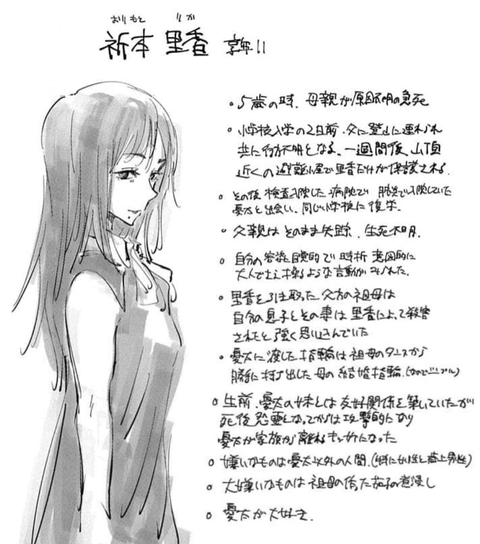 おりもと りか
祈本 里香 享年11
• 5歳の時、母親が原因不明の急死
• 小学校入学の2日前、父に登山に連れられ
共に行方不明となる。一週間後、山頂
近くの避難小屋で里香だけが保護される。
• その後検査入院した病院で肺炎で入院していた
憂太と出会い、同じ小学校に復学。
• 父親はそのまま失踪、生死不明。
• 自分の容姿に自覚的で時折意図的に
大人でも手玉にとるような言動がみられた。
• 里香を引き取った父方の祖母は
自分の息子とその妻は里香によって殺害
されたと強く思い込んでいた
• 憂太に渡した指輪は祖母のタンスから
勝手に持ち出した母の結婚指輪。
• 生前、憂太の妹とは友好関係を築いていたが
死後怨霊となってからは攻撃的になり
憂太が家族から離れるきっかけになった
• 嫌いなものは憂太以外の人間。
• 大嫌いなものは祖母の作った茄子の煮浸し
• 憂太が大好き。